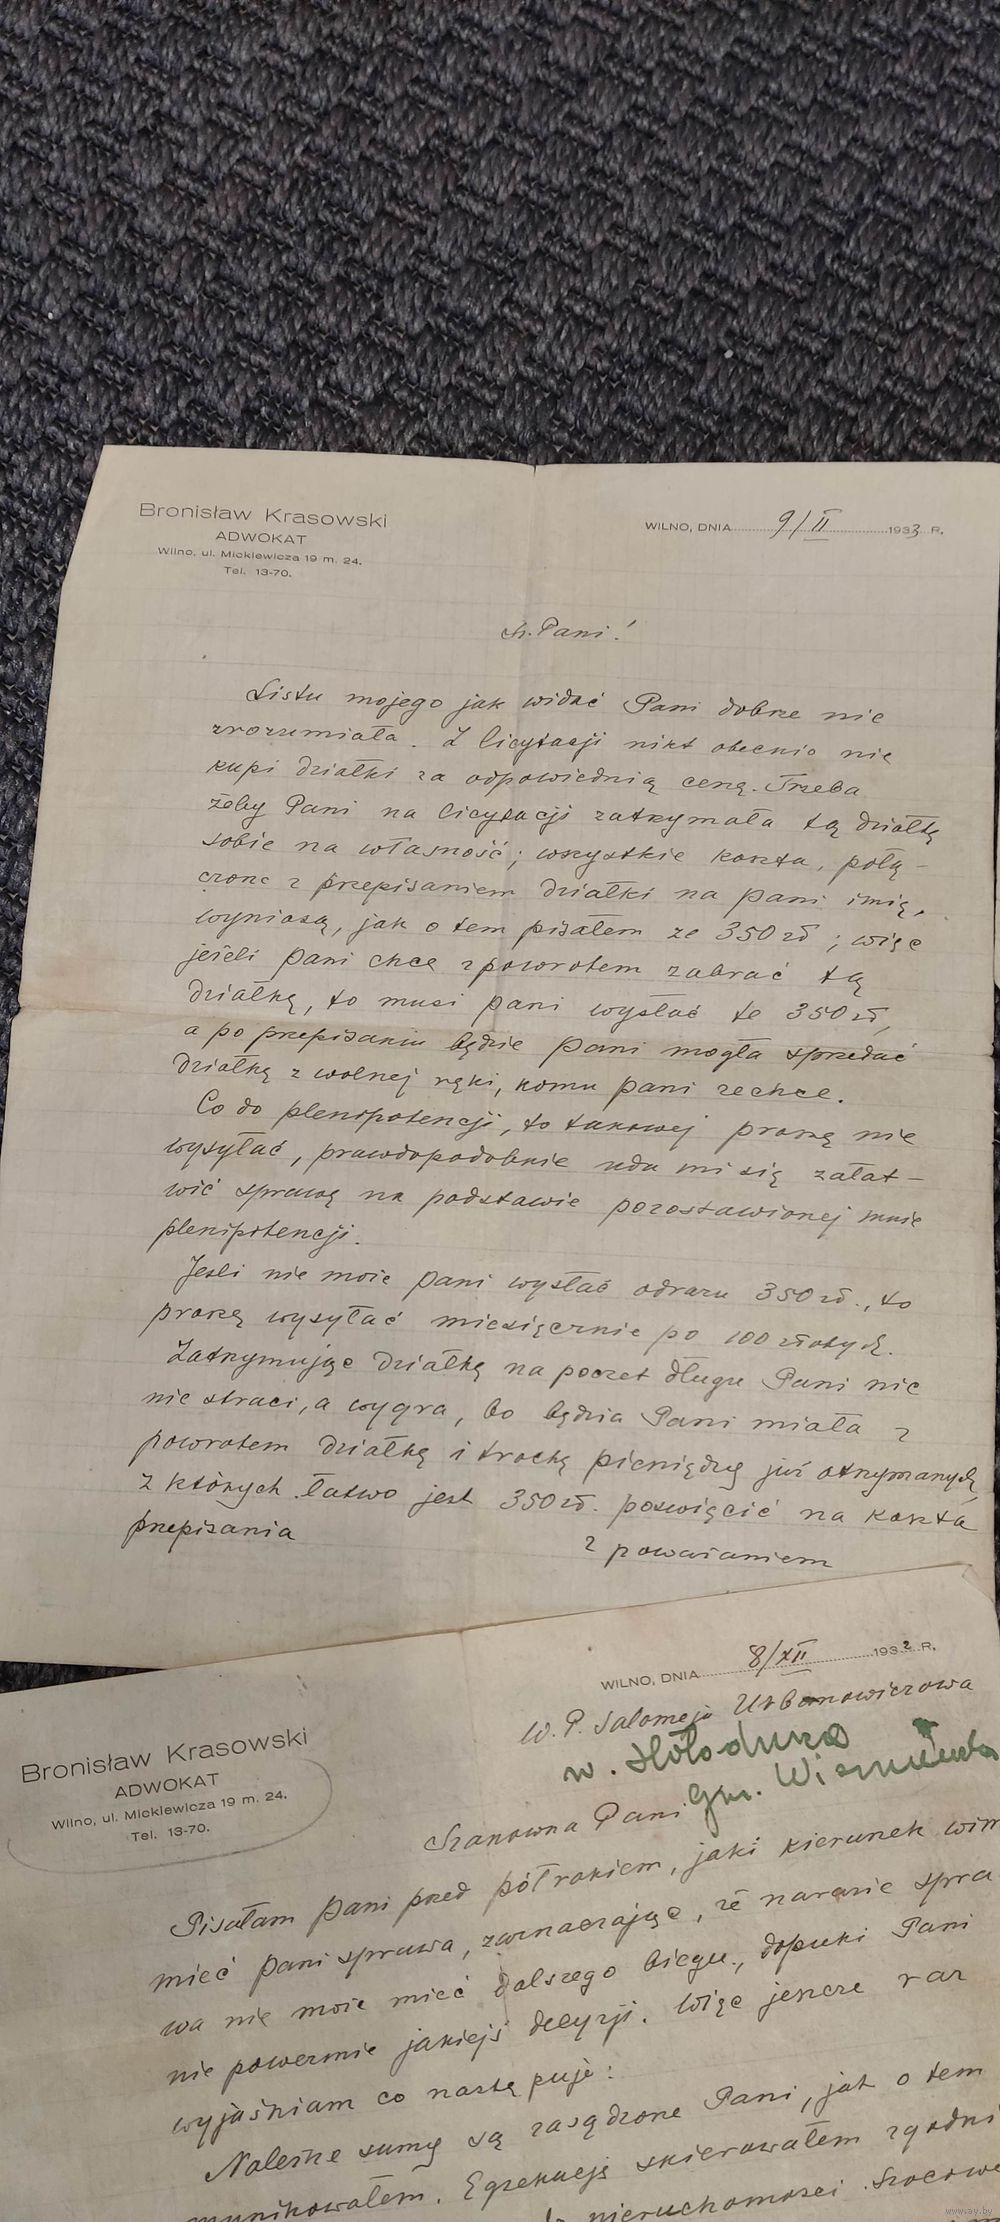 Bronisław Krasowski
ADWOKAT
Wilno, ul. Mickiewicza 19 m. 24.
Tel. 13-70.
WILNO, DNIA 9/II 1933 R.
Sz. Pani!
Listu mojego jak widać Pani dobrze nie
zrozumiała. Z licytacji nikt obecnie nie
kupi działki za odpowiednią cenę. Trzeba
żeby Pani na licytacji zatrzymała tą działkę
sobie na własność; wszystkie koszta, połą-
czone z przepisaniem działki na pani imię,
wyniosą, jak o tem pisałem ze 350 zł; więc
jeżeli pani chce zpowrotem zabrać tą
działkę, to musi pani wysłać te 350 zł,
a po przepisaniu będzie pani mogła sprzedać
działkę z wolnej ręki, komu pani zechce.
Co do plenipotencji, to takowej proszę nie
wysyłać, prawdopodobnie uda mi się załat-
wić sprawę na podstawie pozostawionej mnie
plenipotencji.
Jeśli nie może pani wysłać odrazu 350 zł., to
proszę wysyłać miesięcznie po 100 złotych.
Zatrzymując działkę na poczet długu Pani nic
nie straci, a wygra, bo będzie Pani miała z
powrotem działkę i trochę pieniędzy już otrzymanych,
z których łatwo jest 350 zł. poświęcić na koszta
przepisania
z poważaniem
WILNO, DNIA 8/XII 1932 R.
Bronisław Krasowski
ADWOKAT
Wilno, ul. Mickiewicza 19 m. 24.
Tel. 13-70.
W. P. Salomeja Urbanowiczowa
w.
gm.
Szanowna Pani
Pisałam pani przed półrokiem, jaki kierunek win
mieć pani sprawa, zaznaczając, że narazie spra
wa nie może mieć dalszego biegu, dopuki Pani
nie poweźmie jakiejś decyzji. Więc jeszcze raz
wyjaśniam co następuje:
Należne sumy są zasądzone Pani, jak o tem
munikowałem. Egzekucję skierowałem zgodni
nieruchomości
www.ay.by